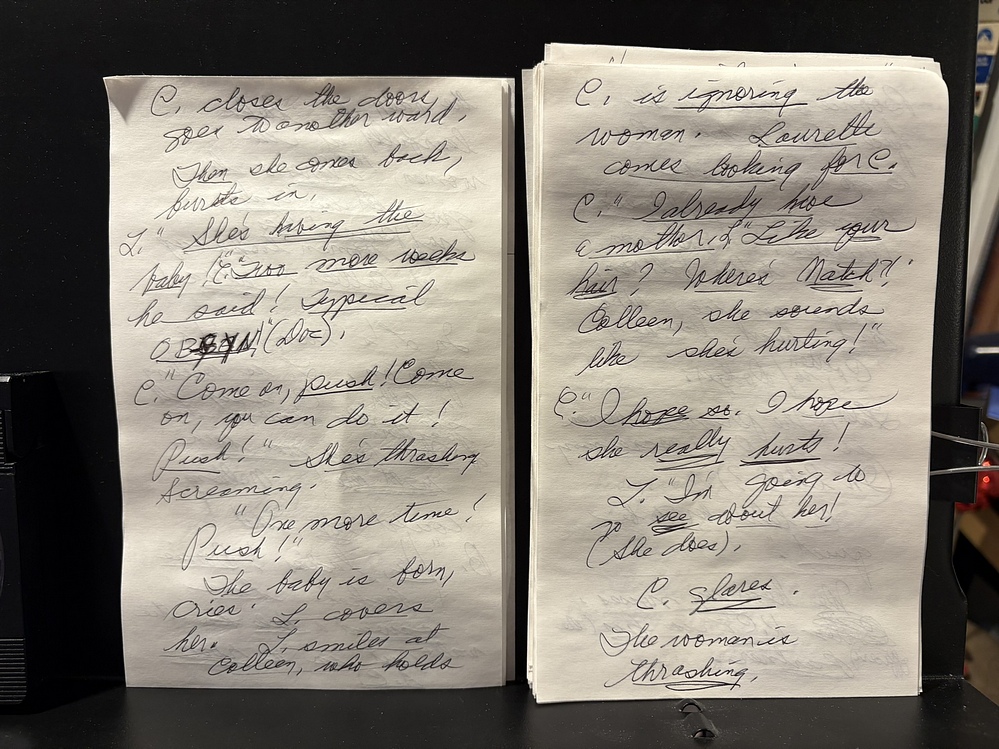 C. closes the doors,
goes to another ward.
Then she comes back,
bursts in.
L." She's having the
baby!" C. "Two more weeks
he said! Typical
OBGYN!" (Doc).
C. "Come on, push! Come
on, you can do it!
Push!" She's thrashing
screaming.
"One more time!
Push!"
The baby is born,
cries. L. covers
her. L. smiles at
Colleen, who holds
C. is ignoring the
woman. Laurette
comes looking for C.
C." I already have
a mother." L "Like your
hair? Where's Natch?!
Colleen, she sounds
like she's hurting!"
C." I hope so. I hope
she really hurts!
L. "I'm going to
go see about her!
(She does).
C. glares.
The woman is
thrashing.